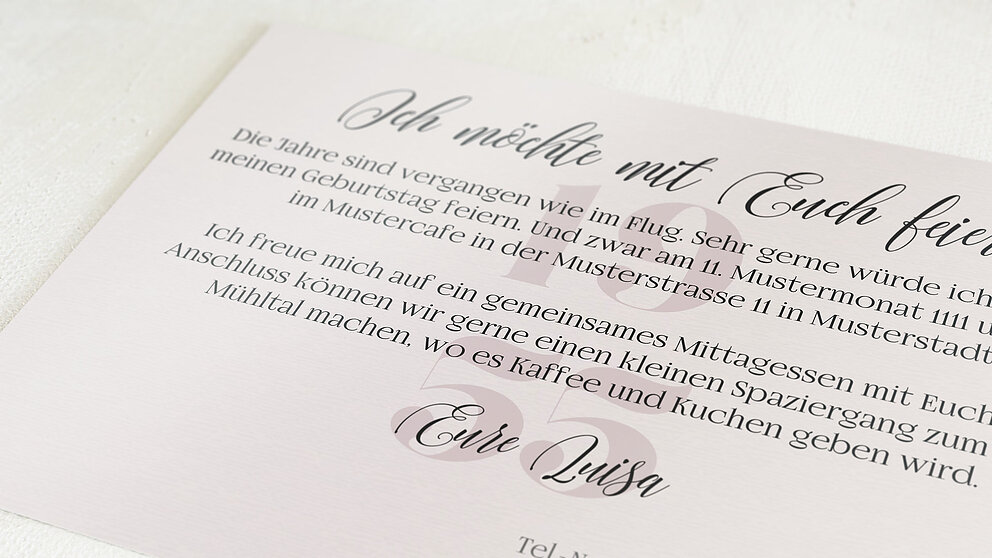 Ich möchte mit Euch feier
Die Jahre sind vergangen wie im Flug. Sehr gerne würde ich
meinen Geburtstag feiern. Und zwar am 11. Mustermonat 1111 u
im Mustercafe in der Musterstrasse 11 in Musterstadt
19
Ich freue mich auf ein gemeinsames Mittagessen mit Euch
Anschluss können wir gerne einen kleinen Spaziergang zum
Mühltal machen, wo es Kaffee und Kuchen geben wird.
55
Eure Luisa
Tel.-N